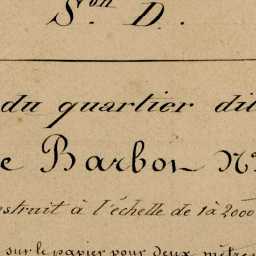 Son D.
du quartier dit
e Barbot No
nstruit à l'échelle de 1 à 2000
sur le papier pour deux mètres